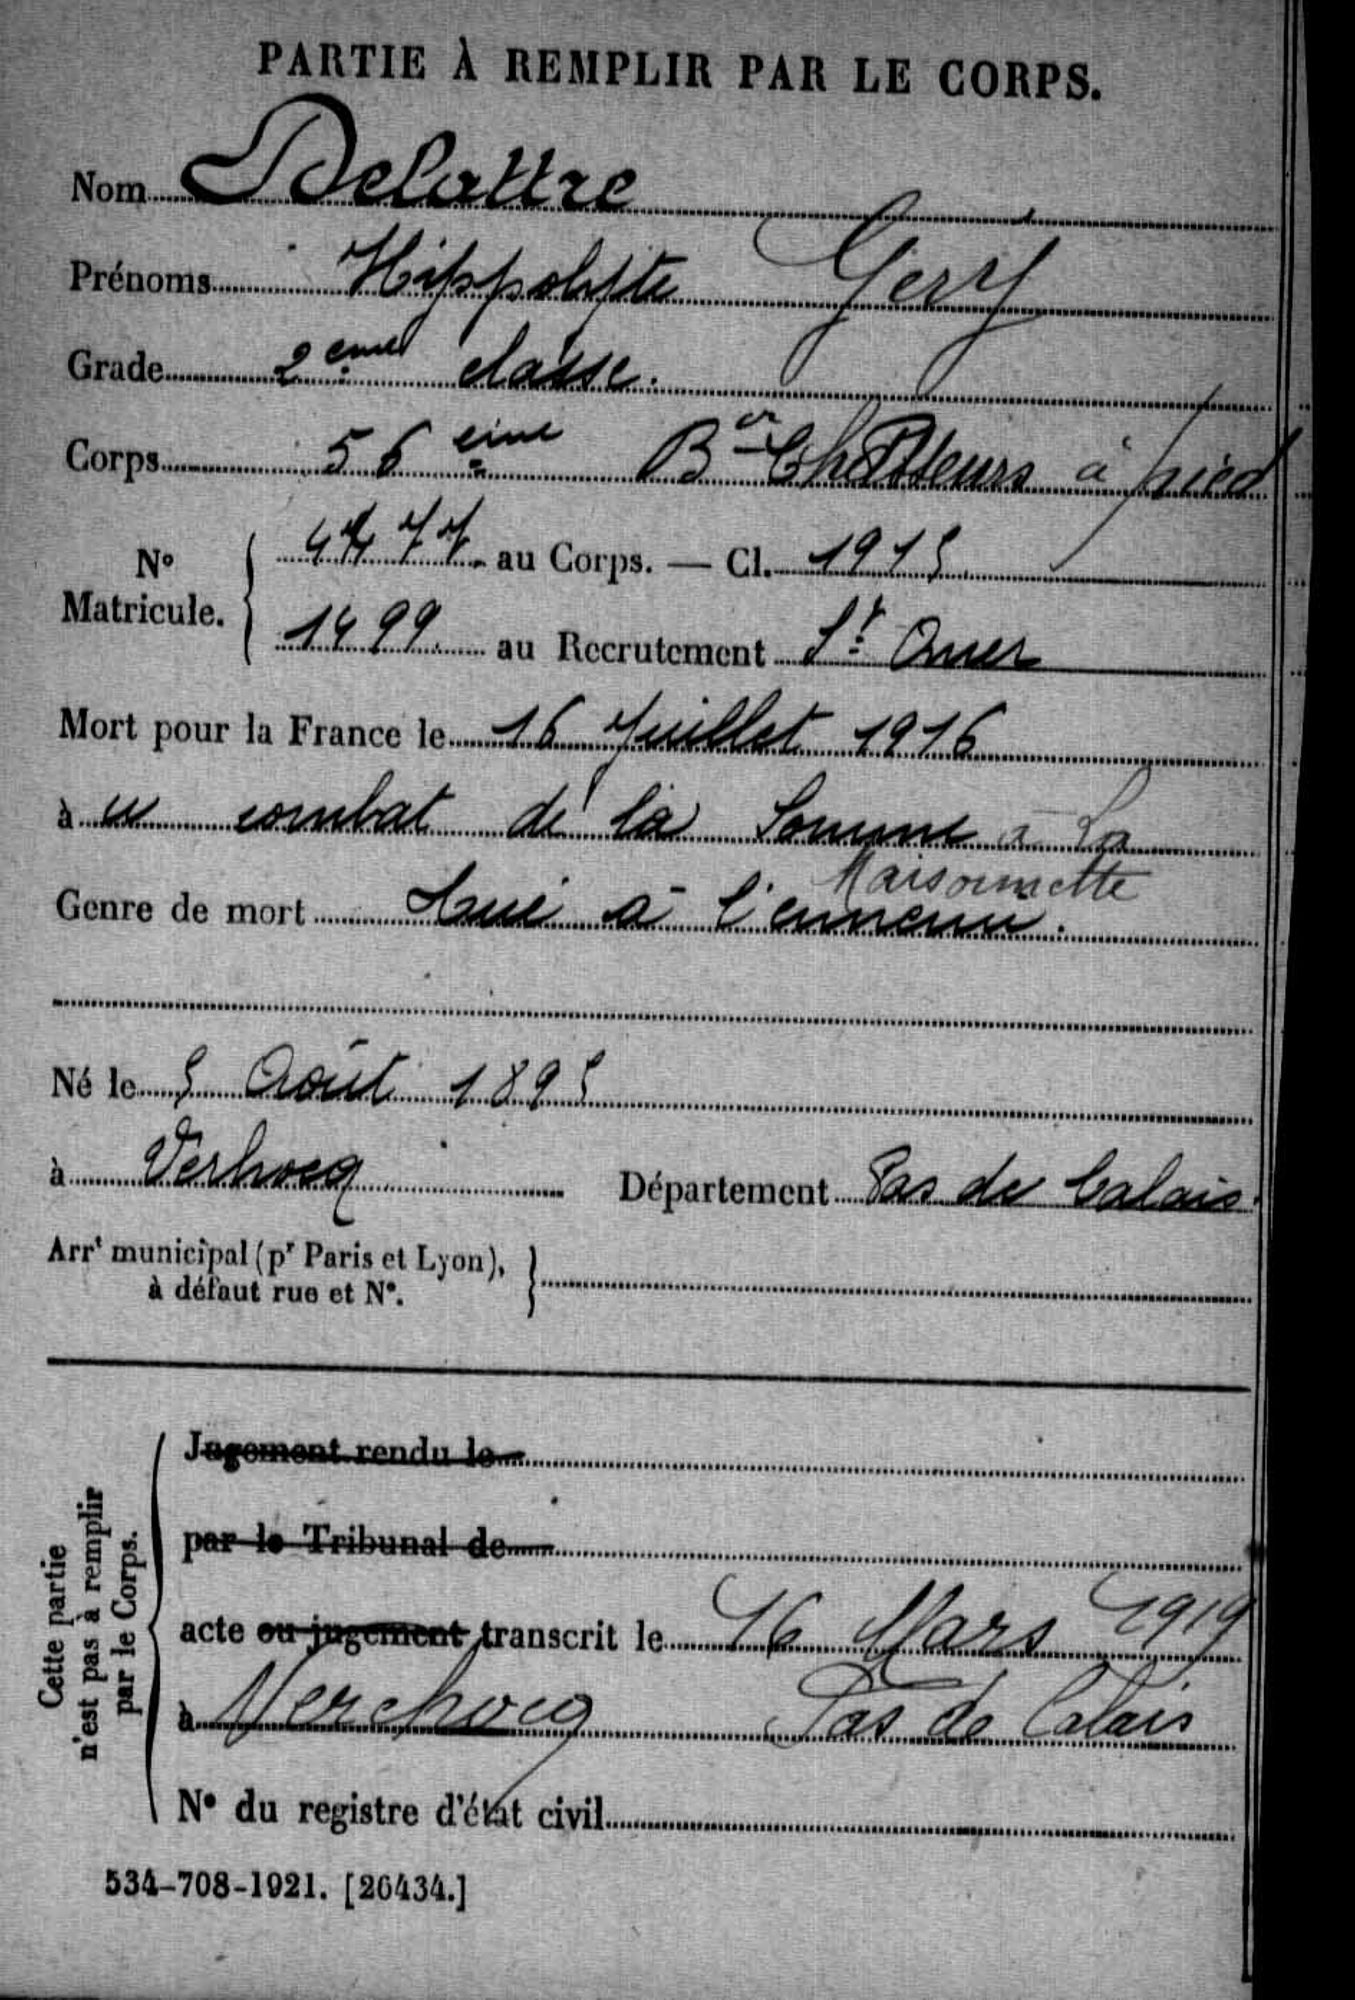 PARTIE À REMPLIR PAR LE CORPS.
Nom Delattre
Prénoms Hippolyte Gery
Grade 2eme classe.
Corps 56 eme Bon Chasseurs à pied
No Matricule. { 4477 au Corps. — Cl. 1915
1499 au Recrutement St Omer
Mort pour la France le 16 Juillet 1916
à u combat de la Somme à La
Maisonnette
Genre de mort Tué à l'ennemi.
Né le 5 Août 1895
à Verhocq Département Pas de Calais.
Arrt municipal (pr Paris et Lyon), }
à défaut rue et N°.
Cette partie
n'est pas à remplir
par le Corps.
Jugement rendu le
par le Tribunal de
acte ou jugement transcrit le 16 Mars 1919
à Verchocq Pas de Calais
N° du registre d'état civil
534-708-1921. [26434.]